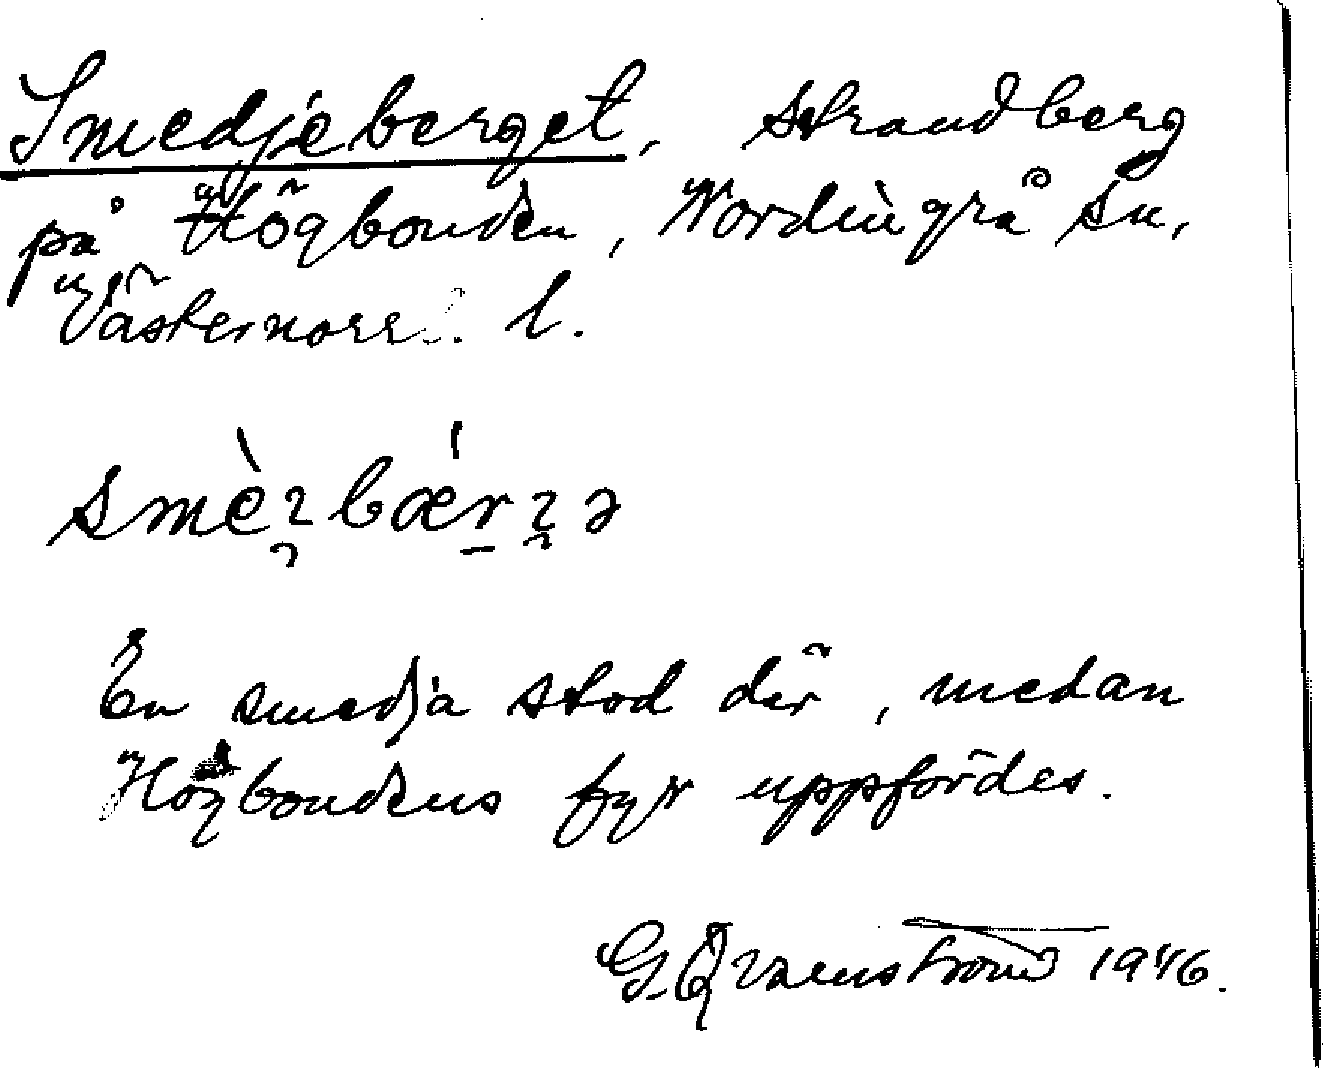 Smedjeberget, strandberg
på Högbonden, Nordingrå sn,
Västernorrl. l.
En smedja stod där, medan
Högbondens fyr uppfördes.
G. Qvarnström 1946.